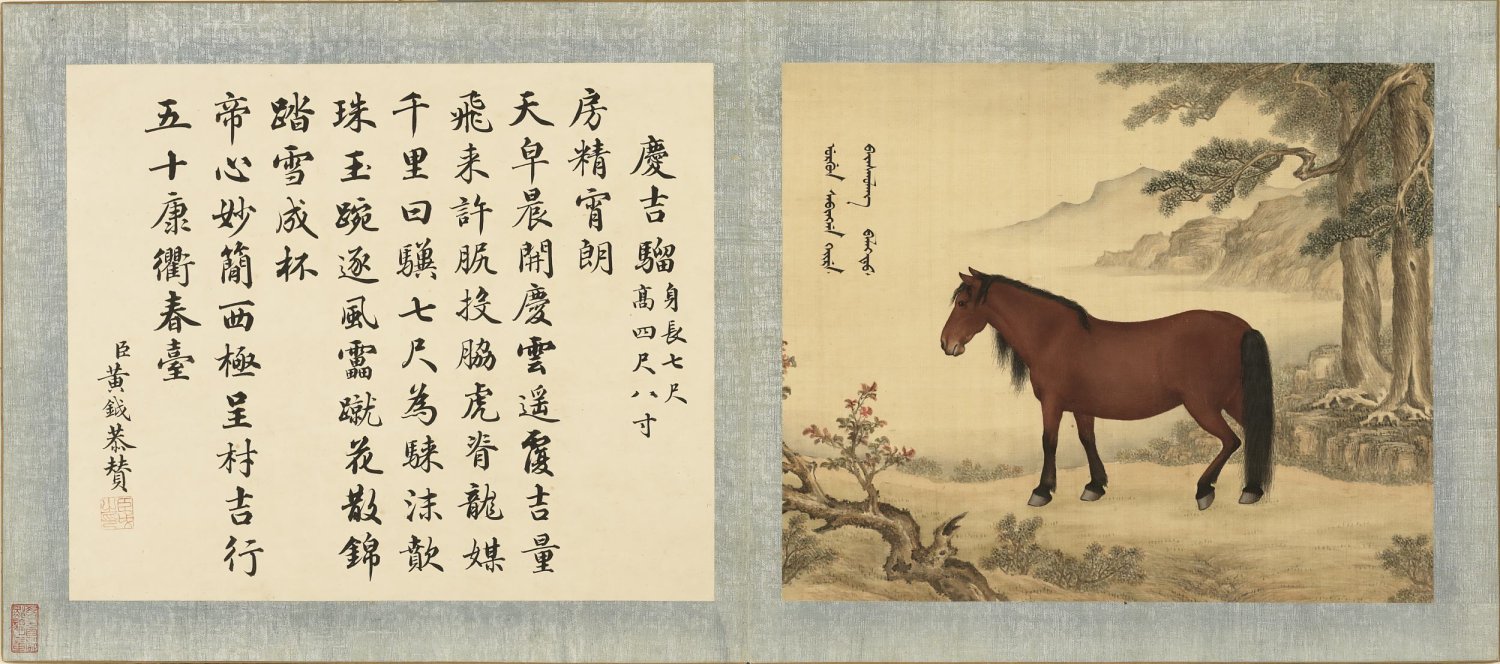 慶吉騮身長七尺
高四尺八寸
房精宵朗
天皁晨開慶雲遥覆吉量
飛来許脤投脇虎脊龍媒
千里曰驥七尺為騋沫歕
珠玉踠逐風靁蹴花散錦
踏雪成杯
帝心妙簡西極呈材吉行
五十康衢春臺
臣黄鉞恭贊